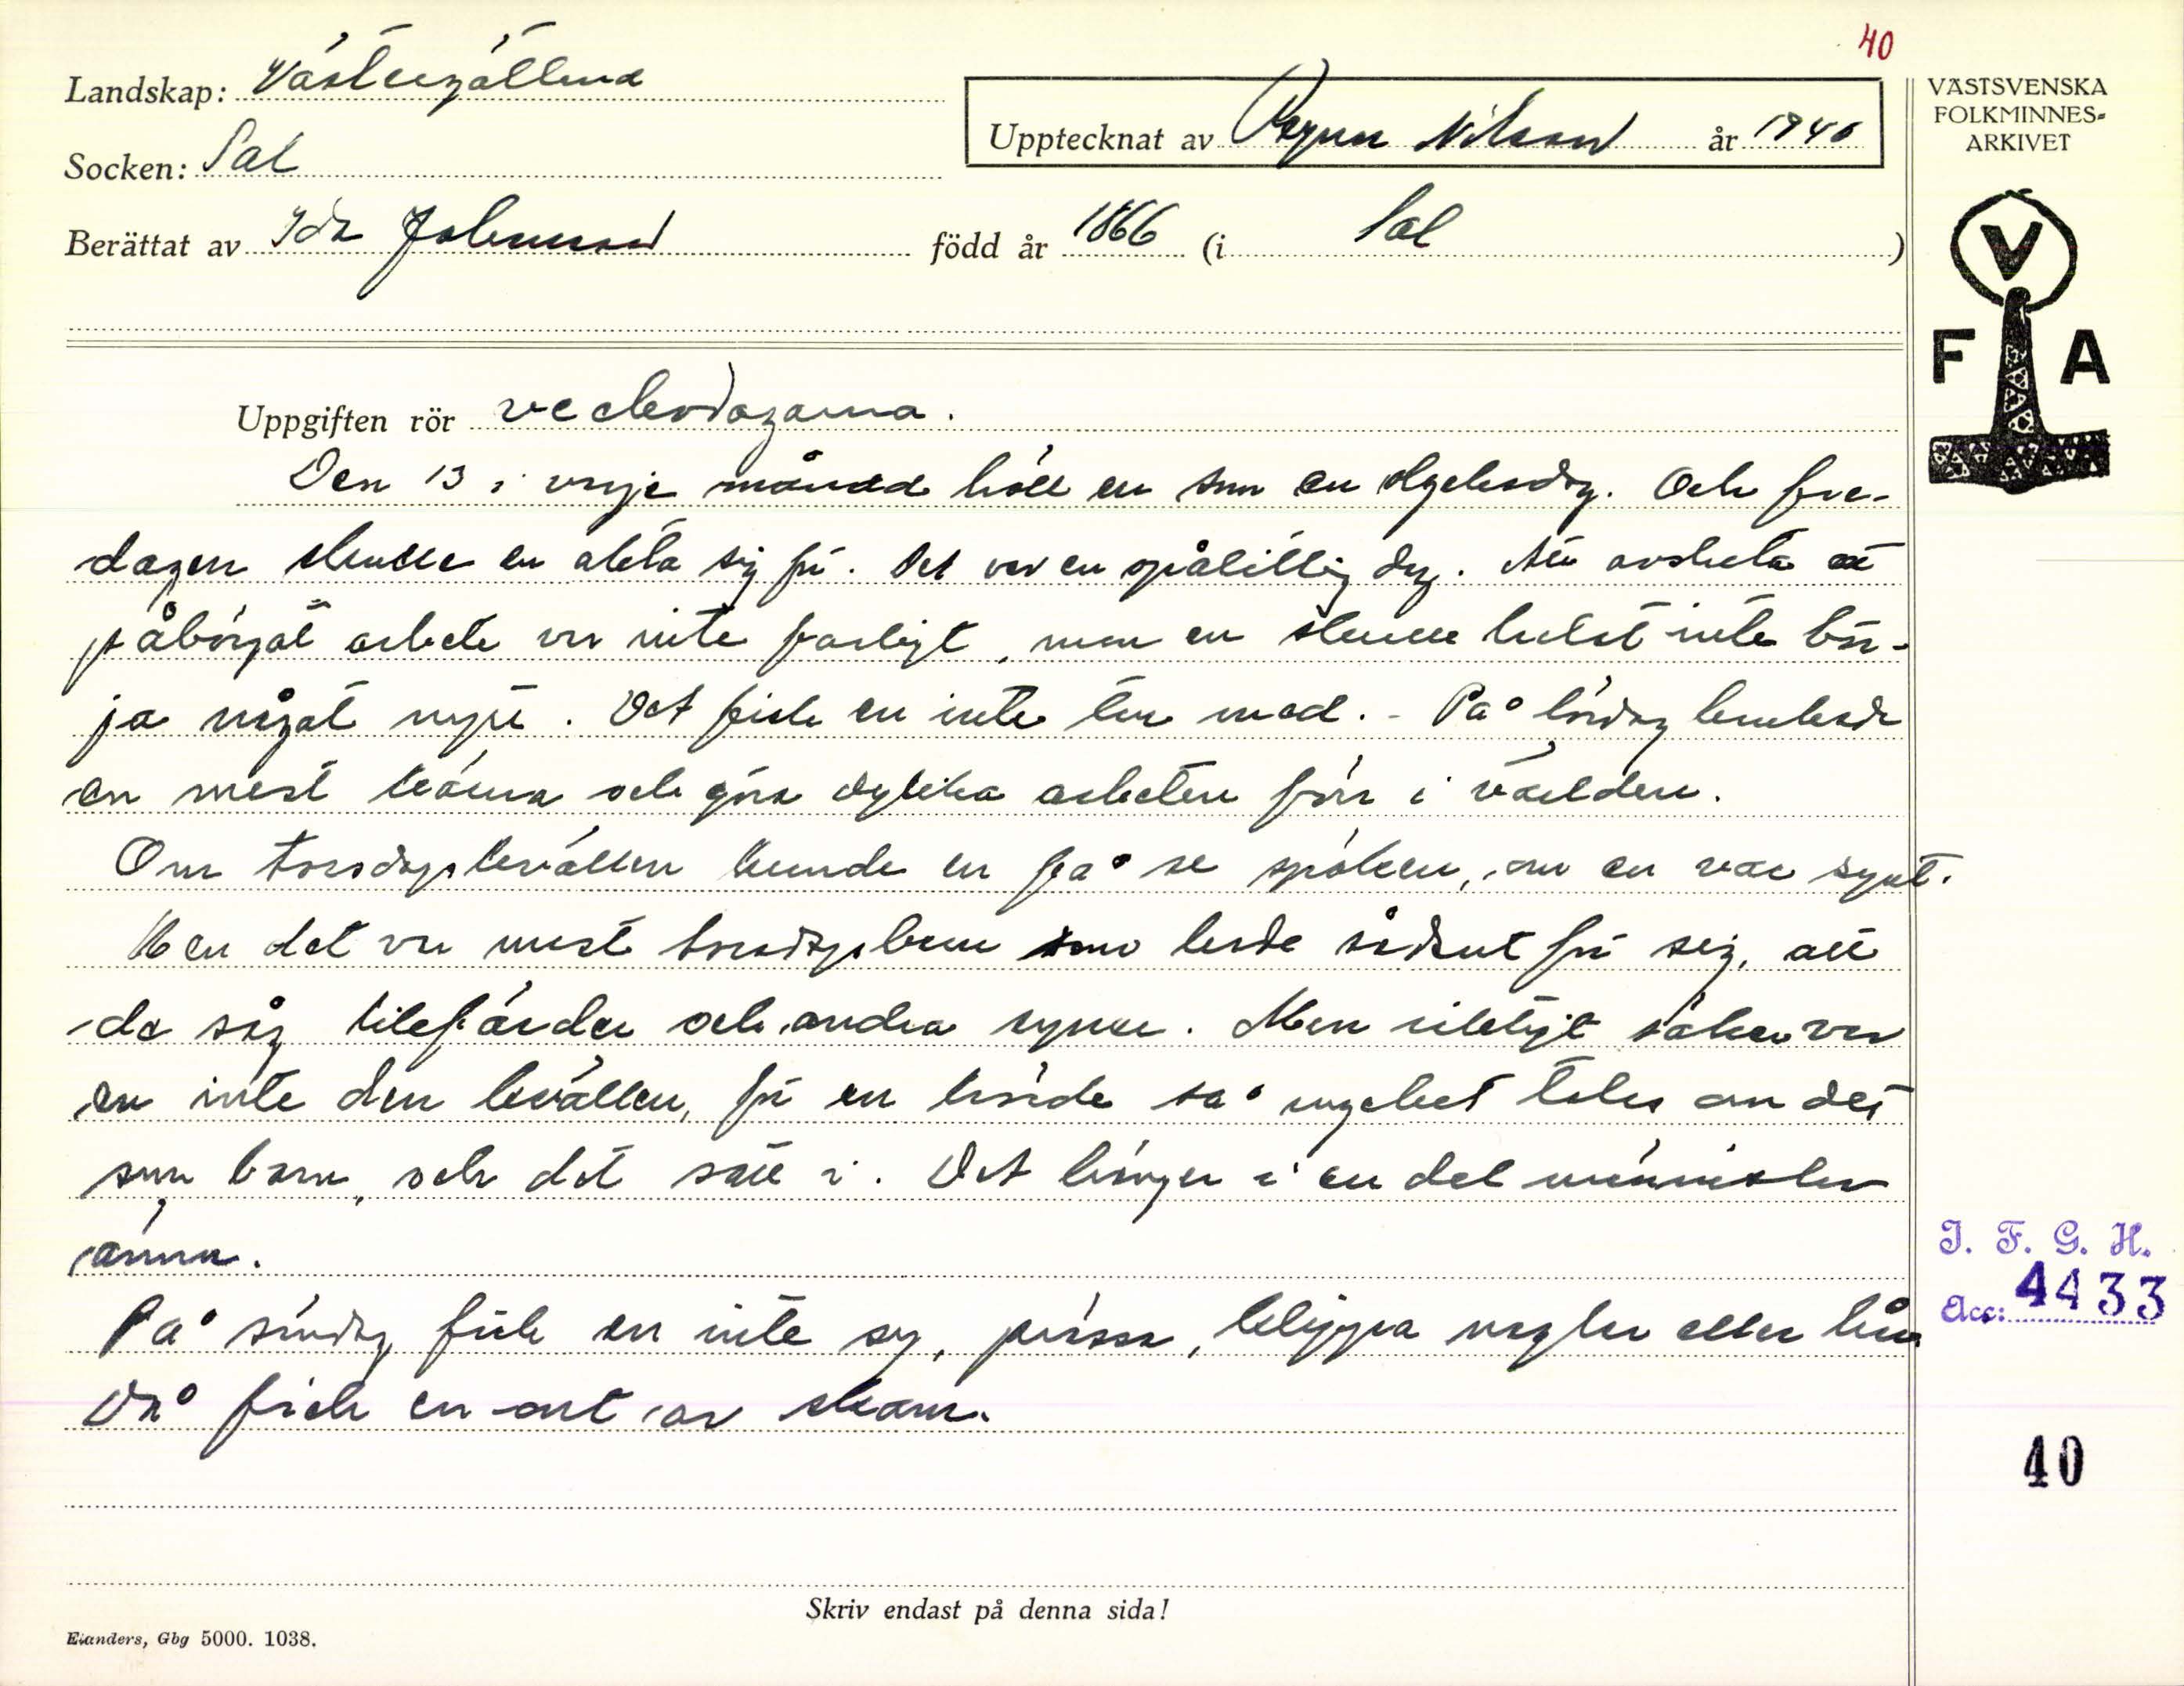 40
Landskap: Västergötland
Upptecknat av Ragnar Nilsson år 1940
Socken: Sal
Berättat av Ida Johansson född år 1866 (i Sal)
VÄSTSVENSKA
FOLKMINNES-
ARKIVET
V
F A
Uppgiften rör veckodagarna.
Den 13 i varje månad höll en som en olycksdag. Och fre-
dagen skulle en akta sig för. Det var en opålitlig dag. Att avsluta ett
påbörjat arbete var inte farligt, men en skulle helst inte bör-
ja något nytt. Det fick en inte tur med. - På lördag brukade
en mest städa och göra dylika arbeten förr i världen.
Om torsdagskvällen kunde en få se spöken, om en var synt.
Men det var mest torsdagsbarn som hade sådant för sig, att
de såg likfärder och andra syner. Men riktigt säker var
en inte den kvällen, för en hörde så mycket talas om det
som barn, och det satt i. Det hänger i en del människor
ännu.
På söndag fick en inte sy, pressa, klippa naglar eller hår.
Då fick en ont av skam.
I. F. G. H.
Acc: 4433
40
Skriv endast på denna sida!
Elanders, Gbg 5000. 1038.